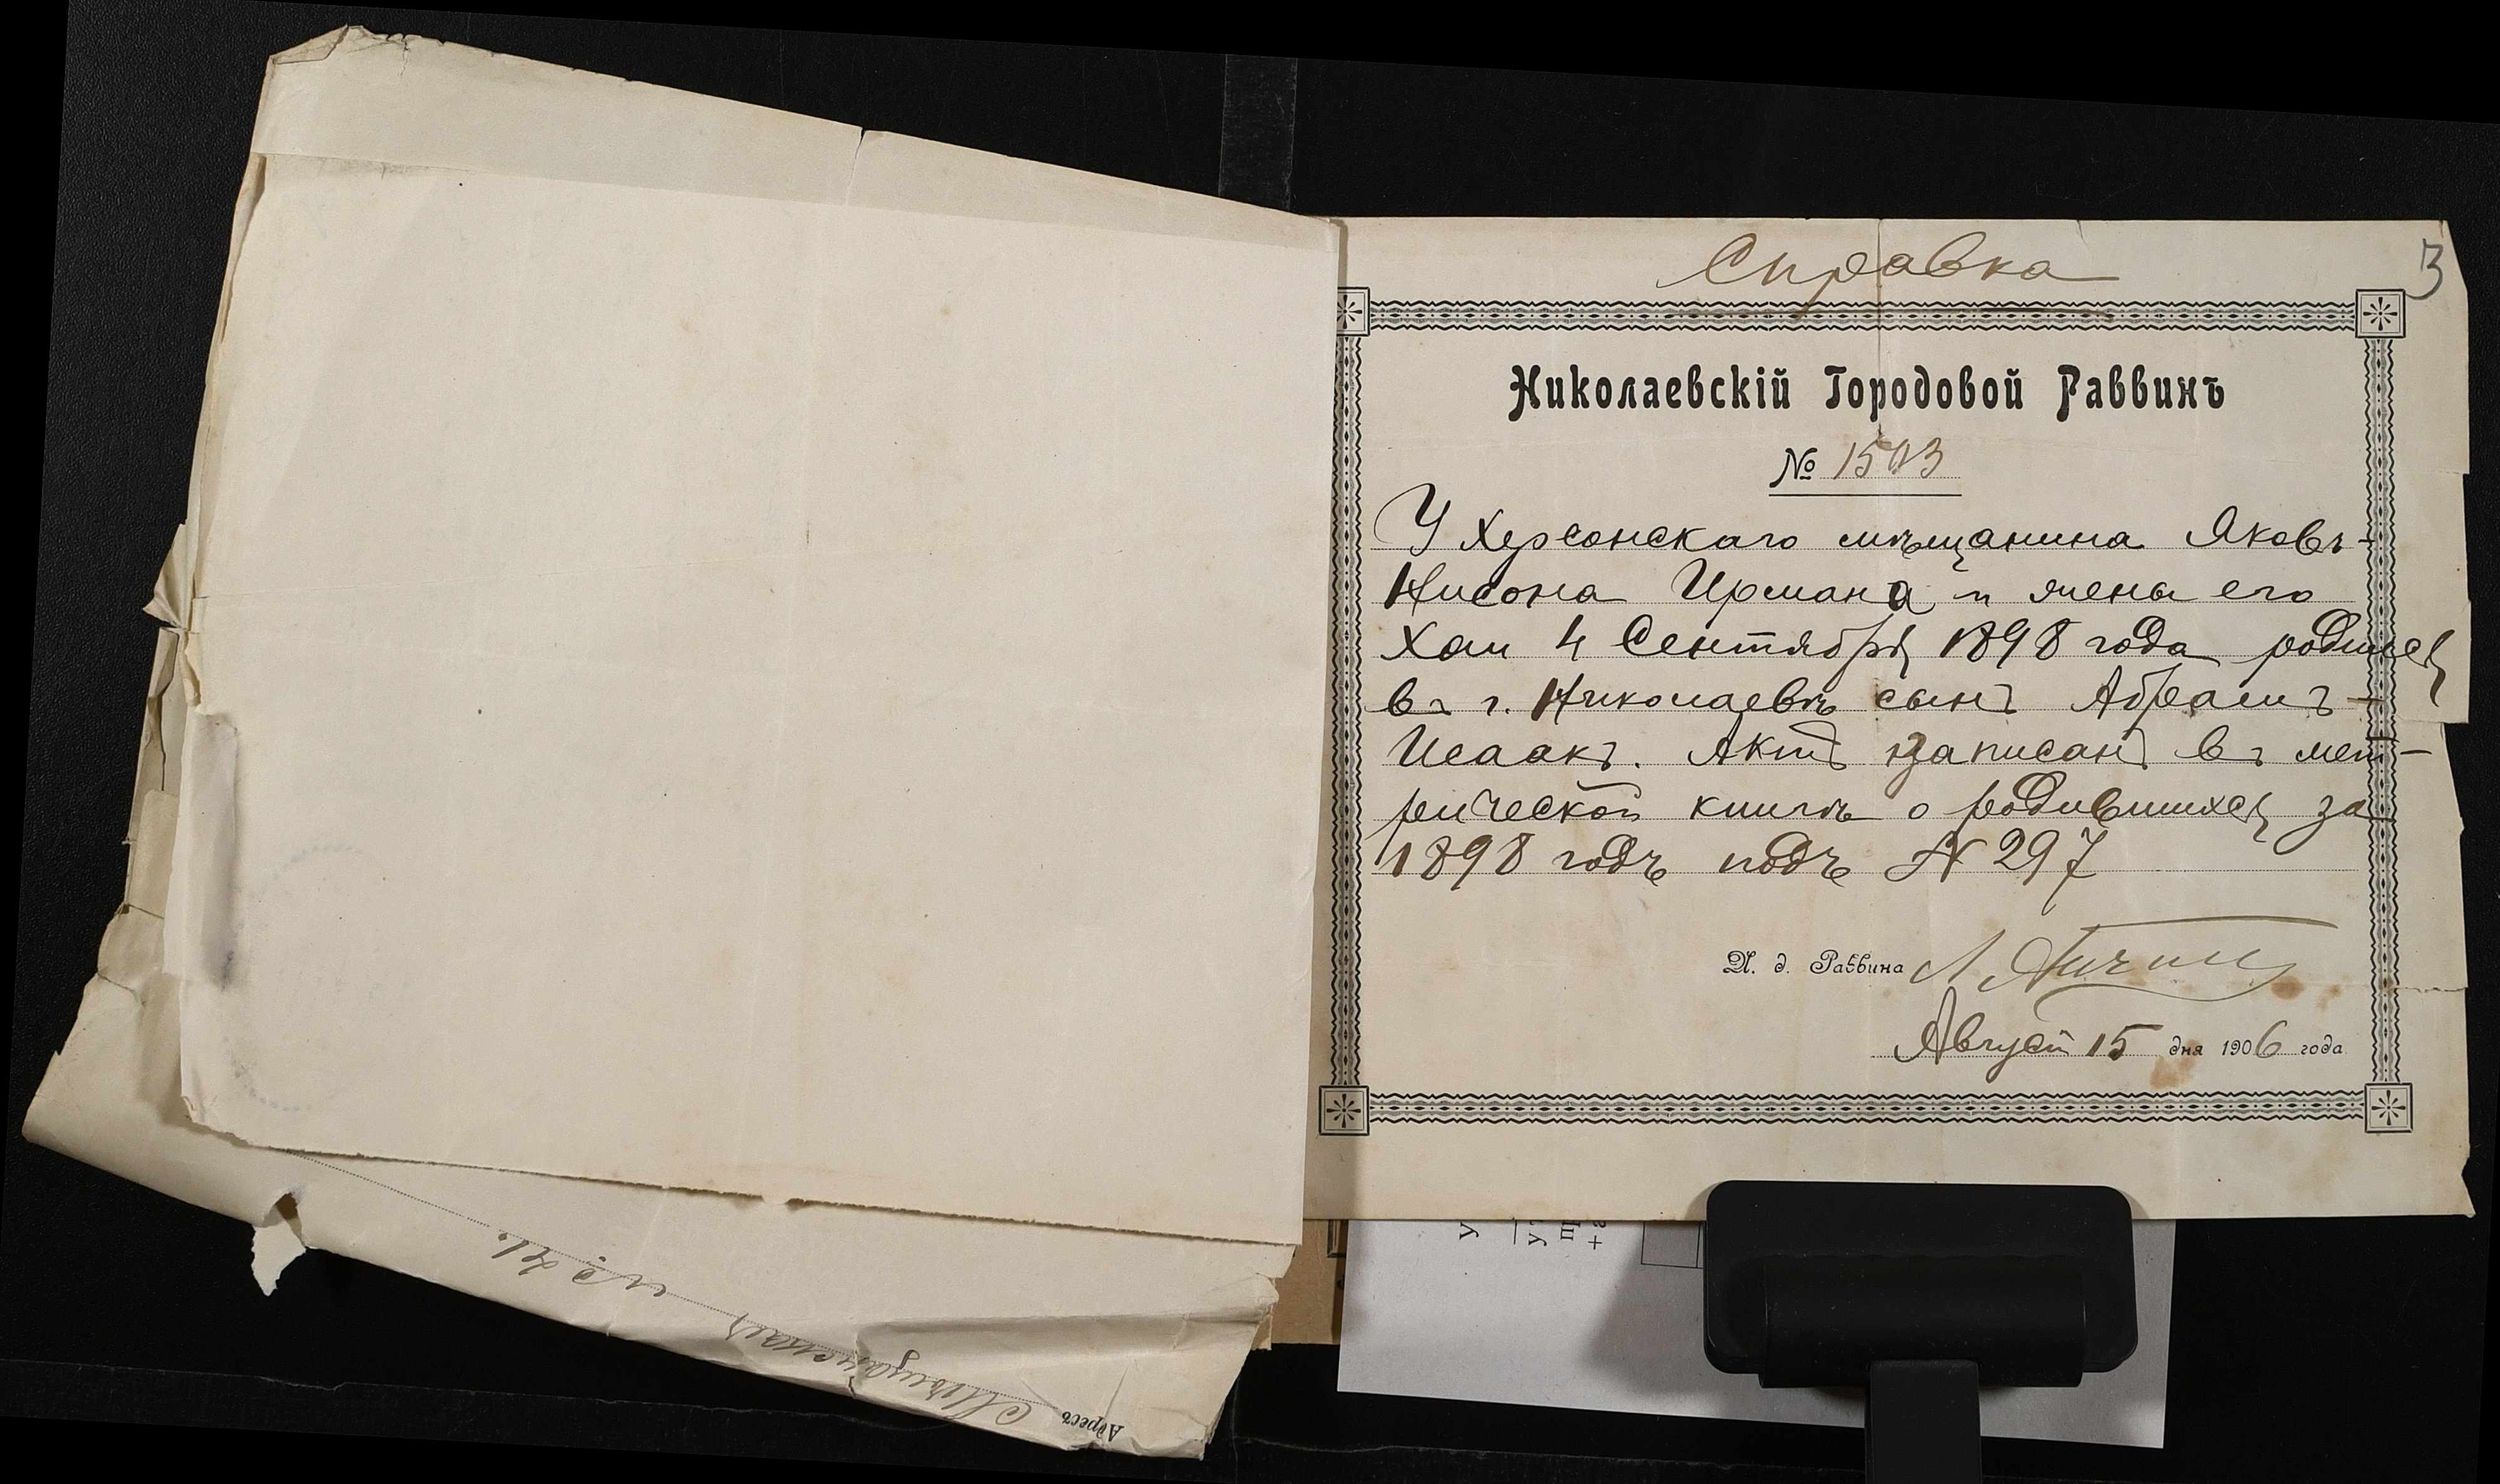 Справка
3
Николаевскій Городовой Раввинъ
№ 1503
У Херсонскаго мѣщанина Яковъ-
Нисона Ирмана и жены его
Хаи 4 Сентября 1898 года родился
въ г. Николаевѣ сынъ Абрамъ-
Исаакъ. Актъ записанъ въ мет-
рической книгѣ о родившихся за
1898 годъ подъ № 297
И. д. Раввина
Августа 15 дня 1906 года
Адресъ Мѣщанская